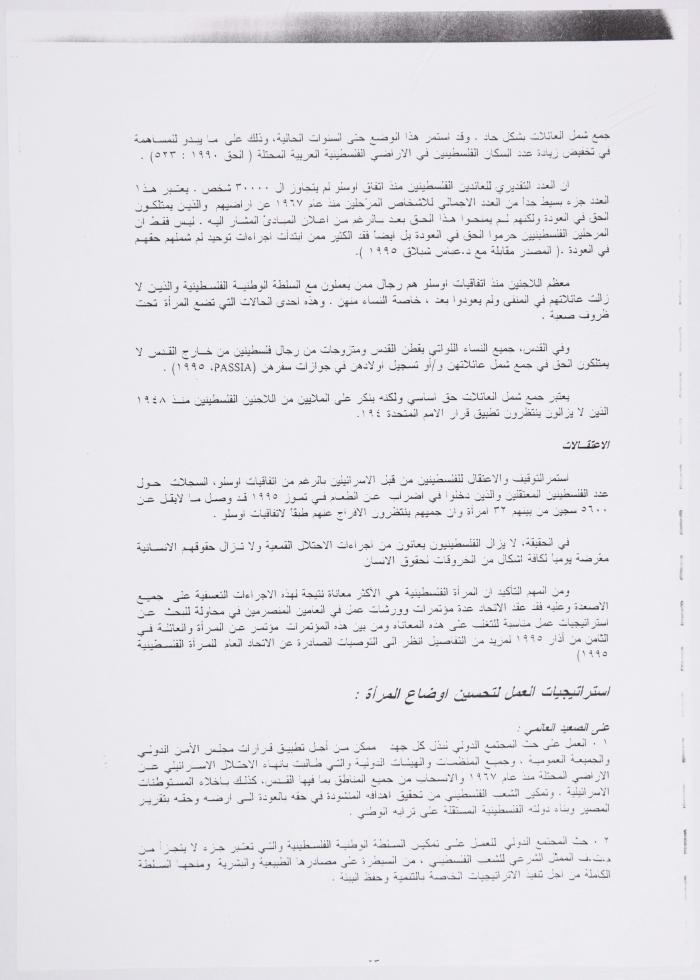 جمع شمل العائلات بشكل حاد . وقد استمر هذا الوضع حتى السنوات الحالية، وذلك على ما يبدو للمساهمة
في تخفيض زيادة عدد السكان الفلسطينين في الاراضي الفلسطينية العربية المحتلة ( الحق ١٩٩٠ : ٥٢٣) .
ان العدد التقديري للعائدين الفلسطينين منذ اتفاق اوسلو لم يتجاوز ال ٣٠٠٠٠ شخص . يعتبر هذا
العدد جزء بسيط جدا من العدد الاجمالي للاشخاص المرحلين منذ عام ١٩٦٧ عن اراضيهم والذين يمتلكون
الحق في العودة ولكنهم لم يمنحوا هذا الحق بعد بالرغم من اعلان المبادئ المشار اليه . ليس فقط ان
المرحلين الفلسطينيين حرموا الحق في العودة بل ايضا فقد الكثير ممن ابتدأت اجراءات توحيد لم شملهم حقهم
في العودة .( المصدر مقابلة مع د.عباس شبلاق ١٩٩٥ ).
معظم اللاجئين منذ اتفاقيات اوسلو هم رجال ممن يعملون مع السلطة الوطنية الفلسطينية والذين لا
زالت عائلاتهم في المنفى ولم يعودوا بعد ، خاصة النساء منهن . وهذه احدى الحالات التي تضع المرأة تحت
ظروف صعبة .
وفي القدس، جميع النساء اللواتي يقطن القدس ومتزوجات من رجال فلسطينين من خارج القدس لا
يمتلكون الحق في جمع شمل عائلاتهن و/أو تسجيل اولادهن في جوازات سفرهن (PASSIA، ١٩٩٥) .
يعتبر جمع شمل العائلات حق اساسي ولكنه ينكر على الملايين من اللاجئين الفلسطينين منذ ١٩٤٨
الذين لا يزالون ينتظرون تطبيق قرار الامم المتحدة ١٩٤.
الاعتقالات
استمرالتوقيف والاعتقال للفلسطينين من قبل الاسرائيلين بالرغم من اتفاقيات اوسلو، السجلات حول
عدد الفلسطينين المعتقلين والذين دخلوا في اضراب عن الطعام في تموز ١٩٩٥ قد وصل ما لايقل عن
٥٦٠٠ سجين من بينهم ٣٢ امرأة وان جميهم ينتظرون الافراج عنهم طبقا لاتفاقيات اوسلو .
في الحقيقة، لا يزال الفلسطينيون يعانون من اجراءات الاحتلال القمعية ولا تزال حقوقهم الانسانية
معرضة يوميا لكافة اشكال من الخروقات لحقوق الانسان
ومن المهم التأكيد ان المرأة الفلسطينية هي الأكثر معاناة نتيجة لهذه الاجراءات التعسفية على جميع
الاصعدة وعليه فقد عقد الاتحاد عدة مؤتمرات وورشات عمل في العامين المنصرمين في محاولة للبحث عن
استراتيجيات عمل مناسبة للتغلب على هذه المعاناه ومن بين هذه المؤتمرات مؤتمر عن المرأة والعائلة في
الثامن من آذار ١٩٩٥ لمزيد من التفاصيل انظر الى التوصيات الصادرة عن الاتحاد العام للمرأة الفلسطينية
١٩٩٥)
استراتيجيات العمل لتحسين اوضاع المرأة :
على الصعيد العالمي :
١ . العمل على حث المجتمع الدولي لبذل كل جهد ممكن من أجل تطبيق قرارات مجلس الأمن الدولي
والجمعية العمومية . وجميع المنظمات والهيئات الدولية والتي طالبت بانهاء الاحتلال الاسرائيلي عن
الاراضي المحتلة منذ عام ١٩٦٧ والانسحاب من جميع المناطق بما فيها القدس، كذلك باخلاء المستوطنات
الاسرائيلية . وتمكين الشعب الفلسطيني من تحقيق اهدافه المنشودة في حقه بالعودة الى ارضه وحقه بتقرير
المصير وبناء دولته الفلسطينية المستقلة على ترابه الوطني .
٢ . حث المجتمع الدولي للعمل على تمكين السلطة الوطنية الفلسطينية والتي تعتبر جزء لا يتجزأ من
م.ت.ف الممثل الشرعي للشعب الفلسطيني ، من السيطرة على مصادرها الطبيعية والبشرية ومنحها السلطة
الكاملة من اجل تنفيذ الاتراتيجيات الخاصة بالتنمية وحفظ البيئة .